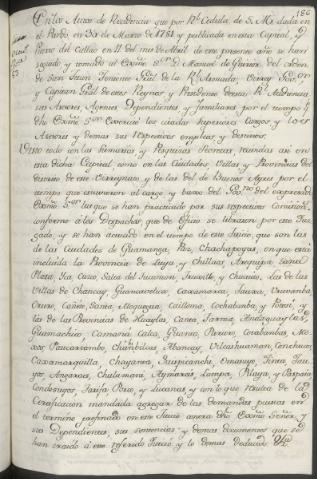 186
En los Autos de Residencia que por Rl. Cedula de S. M. dada en
el Pardo en de Marzo de 1781 y publicada en esta Capital, y
Puerto del Callao en 11 del mes de Abril de este presente año se han
seguido y tomado al Exmo. Sor. Dn. Manuel de Guirior del orden
de San Juan Teniente Gral. de la Rl. Armada, Virrey Govor.
y Capitan Gral. de estos Reynos y Presidente de esta Rl. Audiencia
sus Asesores, Agentes Dependientes y familiares por el tiempo q.
dho Exmo. Sor. Exercio los citados superiores Cargos y los
Asesores y demas sus respectivos empleos y destinos.
Visto todo con las Sumarias y Pesquisas Secretas, recividas asi en
esta dicha Capital como en las Ciudades, Villas y Provincias del
distrito de este Virreynato y de las del de Buenos Ayres por el
tiempo que estuvieron al cargo y baxo del Govno. del expresado
Exmo. Sor. las que se han practicado por sus respectivos Comisionados
conforme à los Despachos que de Oficio se libraron por este Juz-
gado, y se han actuado en el tiempo de este Juicio, que son las
de las Ciudades de Guamanga, Paz, Chachapoyas, en que está
incluida la Provincia de Luya y Chillaos, Arequipa,
Plata, Ica, Cuzco, Truxillo, y las de las
Villas de Chancay, Guancavelica, Caxamarca, Saura, Urubamba
Oruro, Cañete, Santa, Moquegua, Cailloma, Cochabamba, y Potosí, y
las de las Provincias de Huaylas, Canta, Tarma, Andaguaylas,
Guamachuco, Camaná, Calca, Guanta, Parinacochas,
Paucartambo, Chumbivilcas, Abancay, Vilcashuaman, Conchucos,
Caxamarquilla, Chayanta, Quispicanchi, Omasuyo, Tinta,
Angaraes, Chulumani, Aymaraes, Lampa, Piura, y Parparia
Condesuyos, Tarija, Paria, y Lucanas y con lo que resulta de la
Certificacion mandada agregar de las demandas puestas en
el termino prefinado en este Juicio contra dho Exmo. Señor, y
sus Dependientes, sus sentencias y demas documentos que se
han traido à este referido Juicio, y lo demas deducido